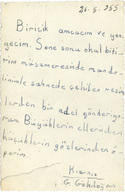 26-5-955
Biricik amcacım ve yen
gecim. Sene sonu okul biti
rim müsameresinde mando
linimle sahnede çekilen resim
lerden bir adet gönderiyo
rum Büyüklerin ellerinden
küçüklerin gözlerinden ö
perim
G. Gökdoğan